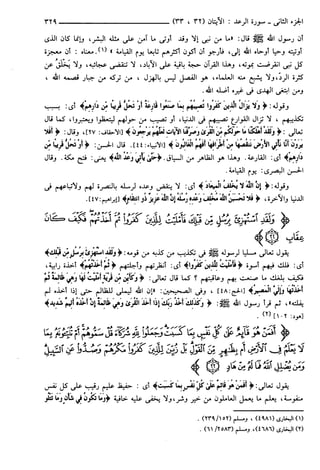 الجزء الثاني - سورة الرعد : الآيتان (٣٢ ، ٣٣) ٣٢٩
أن رسول الله ﷺ قال: «ما من نبي إلا وقد أوتي ما آمن على مثله البشر، وإنما كان الذي
أوتيته وحيا أوحاه الله إلي، فأرجو أن أكون أكثرهم تابعا يوم القيامة» (١). معناه : أن معجزة
كل نبي انقرضت بموته، وهذا القرآن حجة باقية على الآباد، لا تنقضي عجائبه، ولا يخلق عن
كثرة الرد، ولا يشبع منه العلماء، هو الفصل ليس بالهزل . من تركه من جبار قصمه الله ،
ومن ابتغى الهدى في غيره أضله الله.
وقوله: ﴿ وَلَا يَزَالُ الَّذِينَ كَفَرُوا تُصِيبُهُم بِمَا صَنَعُوا قَارِعَةٌ أَوْ تَحُلُّ قَرِيبًا مِّن دَارِهِمْ ﴾ أي: بسبب
تكذيبهم ، لا تزال القوارع تصيبهم في الدنيا، أو تصيب من حولهم ليتعظوا ويعتبروا، كما قال
تعالى : ﴿ وَلَقَدْ أَهْلَكْنَا مَا حَوْلَكُم مِّنَ الْقُرَىٰ وَصَرَّفْنَا الْآيَاتِ لَعَلَّهُمْ يَرْجِعُونَ ﴾ [الأحقاف: ٢٧]، وقال: ﴿ أَفَلَا
يَرَوْنَ أَنَّا نَأْتِي الْأَرْضَ نَنقُصُهَا مِنْ أَطْرَافِهَا أَفَهُمُ الْغَالِبُونَ ﴾ [الأنبياء: ٤٤]. قال
﴿ أَوْ تَحُلُّ قَرِيبًا مِّن
دَارِهِمْ ﴾ أي: القارعة. وهذا هو الظاهر من السياق. ﴿ حَتَّىٰ يَأْتِيَ وَعْدُ اللَّهِ ﴾ يعني: فتح مكة. وقال
الحسن البصري: يوم القيامة.
وقوله: ﴿ إِنَّ اللَّهَ لَا يُخْلِفُ الْمِيعَادَ ﴾ أي: لا ينقض وعده لرسله بالنصرة لهم ولأتباعهم في
الدنيا والآخرة، ﴿ فَلَا تَحْسَبَنَّ اللَّهَ مُخْلِفَ وَعْدِهِ رُسُلَهُ إِنَّ اللَّهَ عَزِيزٌ ذُو انتِقَامٍ ﴾ [إبراهيم: ٤٧].
﴿ وَلَقَدِ اسْتُهْزِئَ بِرُسُلٍ مِّن قَبْلِكَ فَأَمْلَيْتُ لِلَّذِينَ كَفَرُوا ثُمَّ أَخَذْتُهُمْ فَكَيْفَ كَانَ
عِقَابِ ﴾
يقول تعالى مسليا لرسوله ﷺ في تكذيب من كذبه من قومه: ﴿ وَلَقَدِ اسْتُهْزِئَ بِرُسُلٍ مِّن قَبْلِكَ ﴾
أي: فلك فيهم أسوة ﴿ فَأَمْلَيْتُ لِلَّذِينَ كَفَرُوا ﴾ أي: أنظرتهم وأجلتهم ﴿ ثُمَّ أَخَذْتُهُمْ ﴾ أخذة رابية،
فكيف بلغك ما صنعت بهم وعاقبتهم ؟ كما قال تعالى: ﴿ وَكَأَيِّن مِّن قَرْيَةٍ أَمْلَيْتُ لَهَا وَهِيَ ظَالِمَةٌ ثُمَّ
أَخَذْتُهَا وَإِلَيَّ الْمَصِيرُ ﴾ [الحج: ٤٨] ، وفي الصحيحين: «إن الله ليملي للظالم حتى إذا أخذه لم
يفلته»، ثم قرأ رسول الله ﷺ : ﴿ وَكَذَٰلِكَ أَخْذُ رَبِّكَ إِذَا أَخَذَ الْقُرَىٰ وَهِيَ ظَالِمَةٌ إِنَّ أَخْذَهُ أَلِيمٌ شَدِيدٌ ﴾
[هود: ١٠٢] (٢) .
﴿ أَفَمَنْ هُوَ قَائِمٌ عَلَىٰ كُلِّ نَفْسٍ بِمَا كَسَبَتْ وَجَعَلُوا لِلَّهِ شُرَكَاءَ قُلْ سَمُّوهُمْ أَمْ تُنَبِّئُونَهُ بِمَا
لَا يَعْلَمُ فِي الْأَرْضِ أَم بِظَاهِرٍ مِّنَ الْقَوْلِ بَلْ زُيِّنَ لِلَّذِينَ كَفَرُوا مَكْرُهُمْ وَصُدُّوا عَنِ السَّبِيلِ
وَمَن يُضْلِلِ اللَّهُ فَمَا لَهُ مِنْ هَادٍ ﴾
يقول تعالى: ﴿ أَفَمَنْ هُوَ قَائِمٌ عَلَىٰ كُلِّ نَفْسٍ بِمَا كَسَبَتْ ﴾ أي : حفيظ عليم رقيب على كل نفس
منفوسة، يعلم ما يعمل العاملون من خير وشر، ولا يخفى عليه خافية ﴿ وَمَا تَكُونُ فِي شَأْنٍ وَمَا تَتْلُو
(١) البخاري (٤٩٨١) ، ومسلم (١٥٢ / ٢٣٩) .
(٢) البخاري (٤٦٨٦)، ومسلم (٢٥٨٣ / ٦١) .